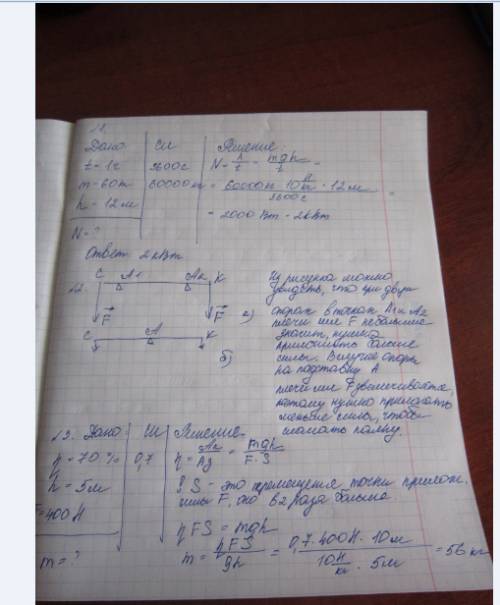 11.
Дано | Си | Решение:
t = 1ч | 3600с | N = A/t = mgh/t =
m = 60т | 60000 кг | = 60000кг · 10 Н/кг · 12м / 3600с =
h = 12м | = 2000 Вт = 2кВт
N = ?
Ответ 2 кВт
12. C A1 A2 K
F F а)
C A K
б)
Из рисунка можно
увидеть, что при двух
опорах в точках A1 и A2
плечи сил F небольшие
значит, нужно
приложить большие
силы. В случае опоры
на подставку A
плечи сил F увеличиваются,
поэтому нужно прилагать
меньше силы, чтобы
сломать палку.
13. Дано | Си | Решение
η = 70% | 0,7 | η = Aп/Aз = mgh/F·S
h = 5м | S - это перемещение точки прилож.
F=400Н | силы F, оно в 2 раза больше
ηFS = mgh
m = ? | m = ηFS/gh = 0,7·400Н·10м / 10 Н/кг · 5м = 56 кг